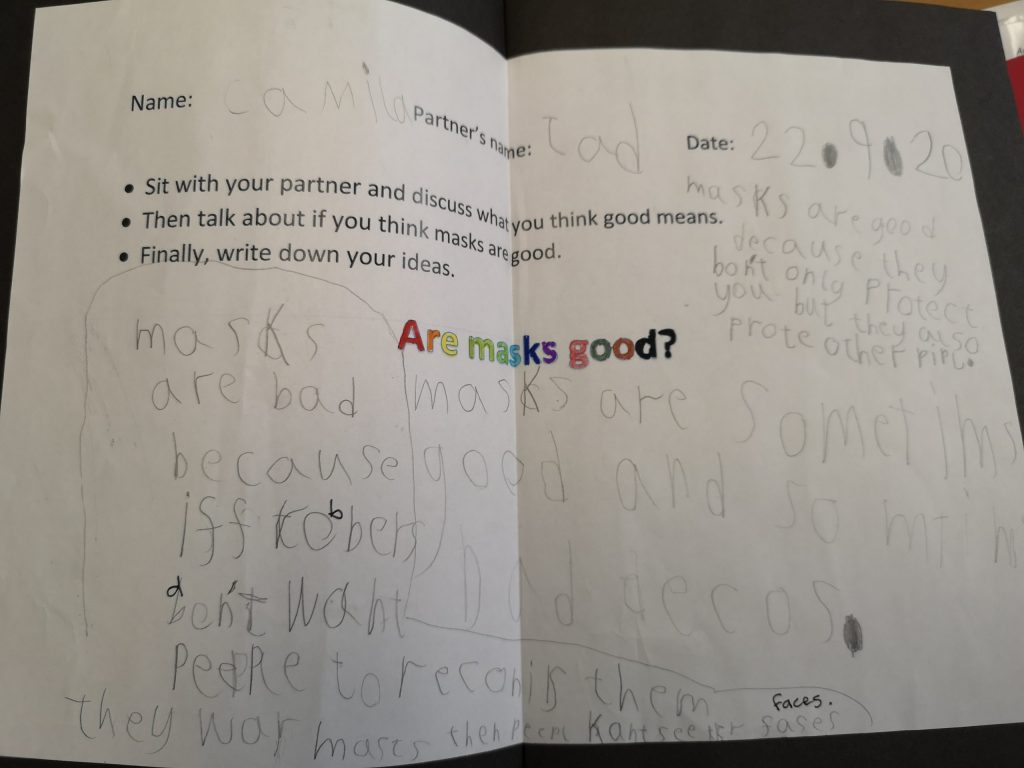 Name: camila Partner's name: Tad Date: 22.9.20
• Sit with your partner and discuss what you think good means.
• Then talk about if you think masks are good.
• Finally, write down your ideas.
masks are good
decause they
bon't only protect
you but they also
prote other pipl.
Are masks good?
masks
are bad
because
iff robers
b
don't want
d
peaple to
they war mascs then
kant see
sases
faces.
masks are sometihms
good and so mtim
bad decos.
them